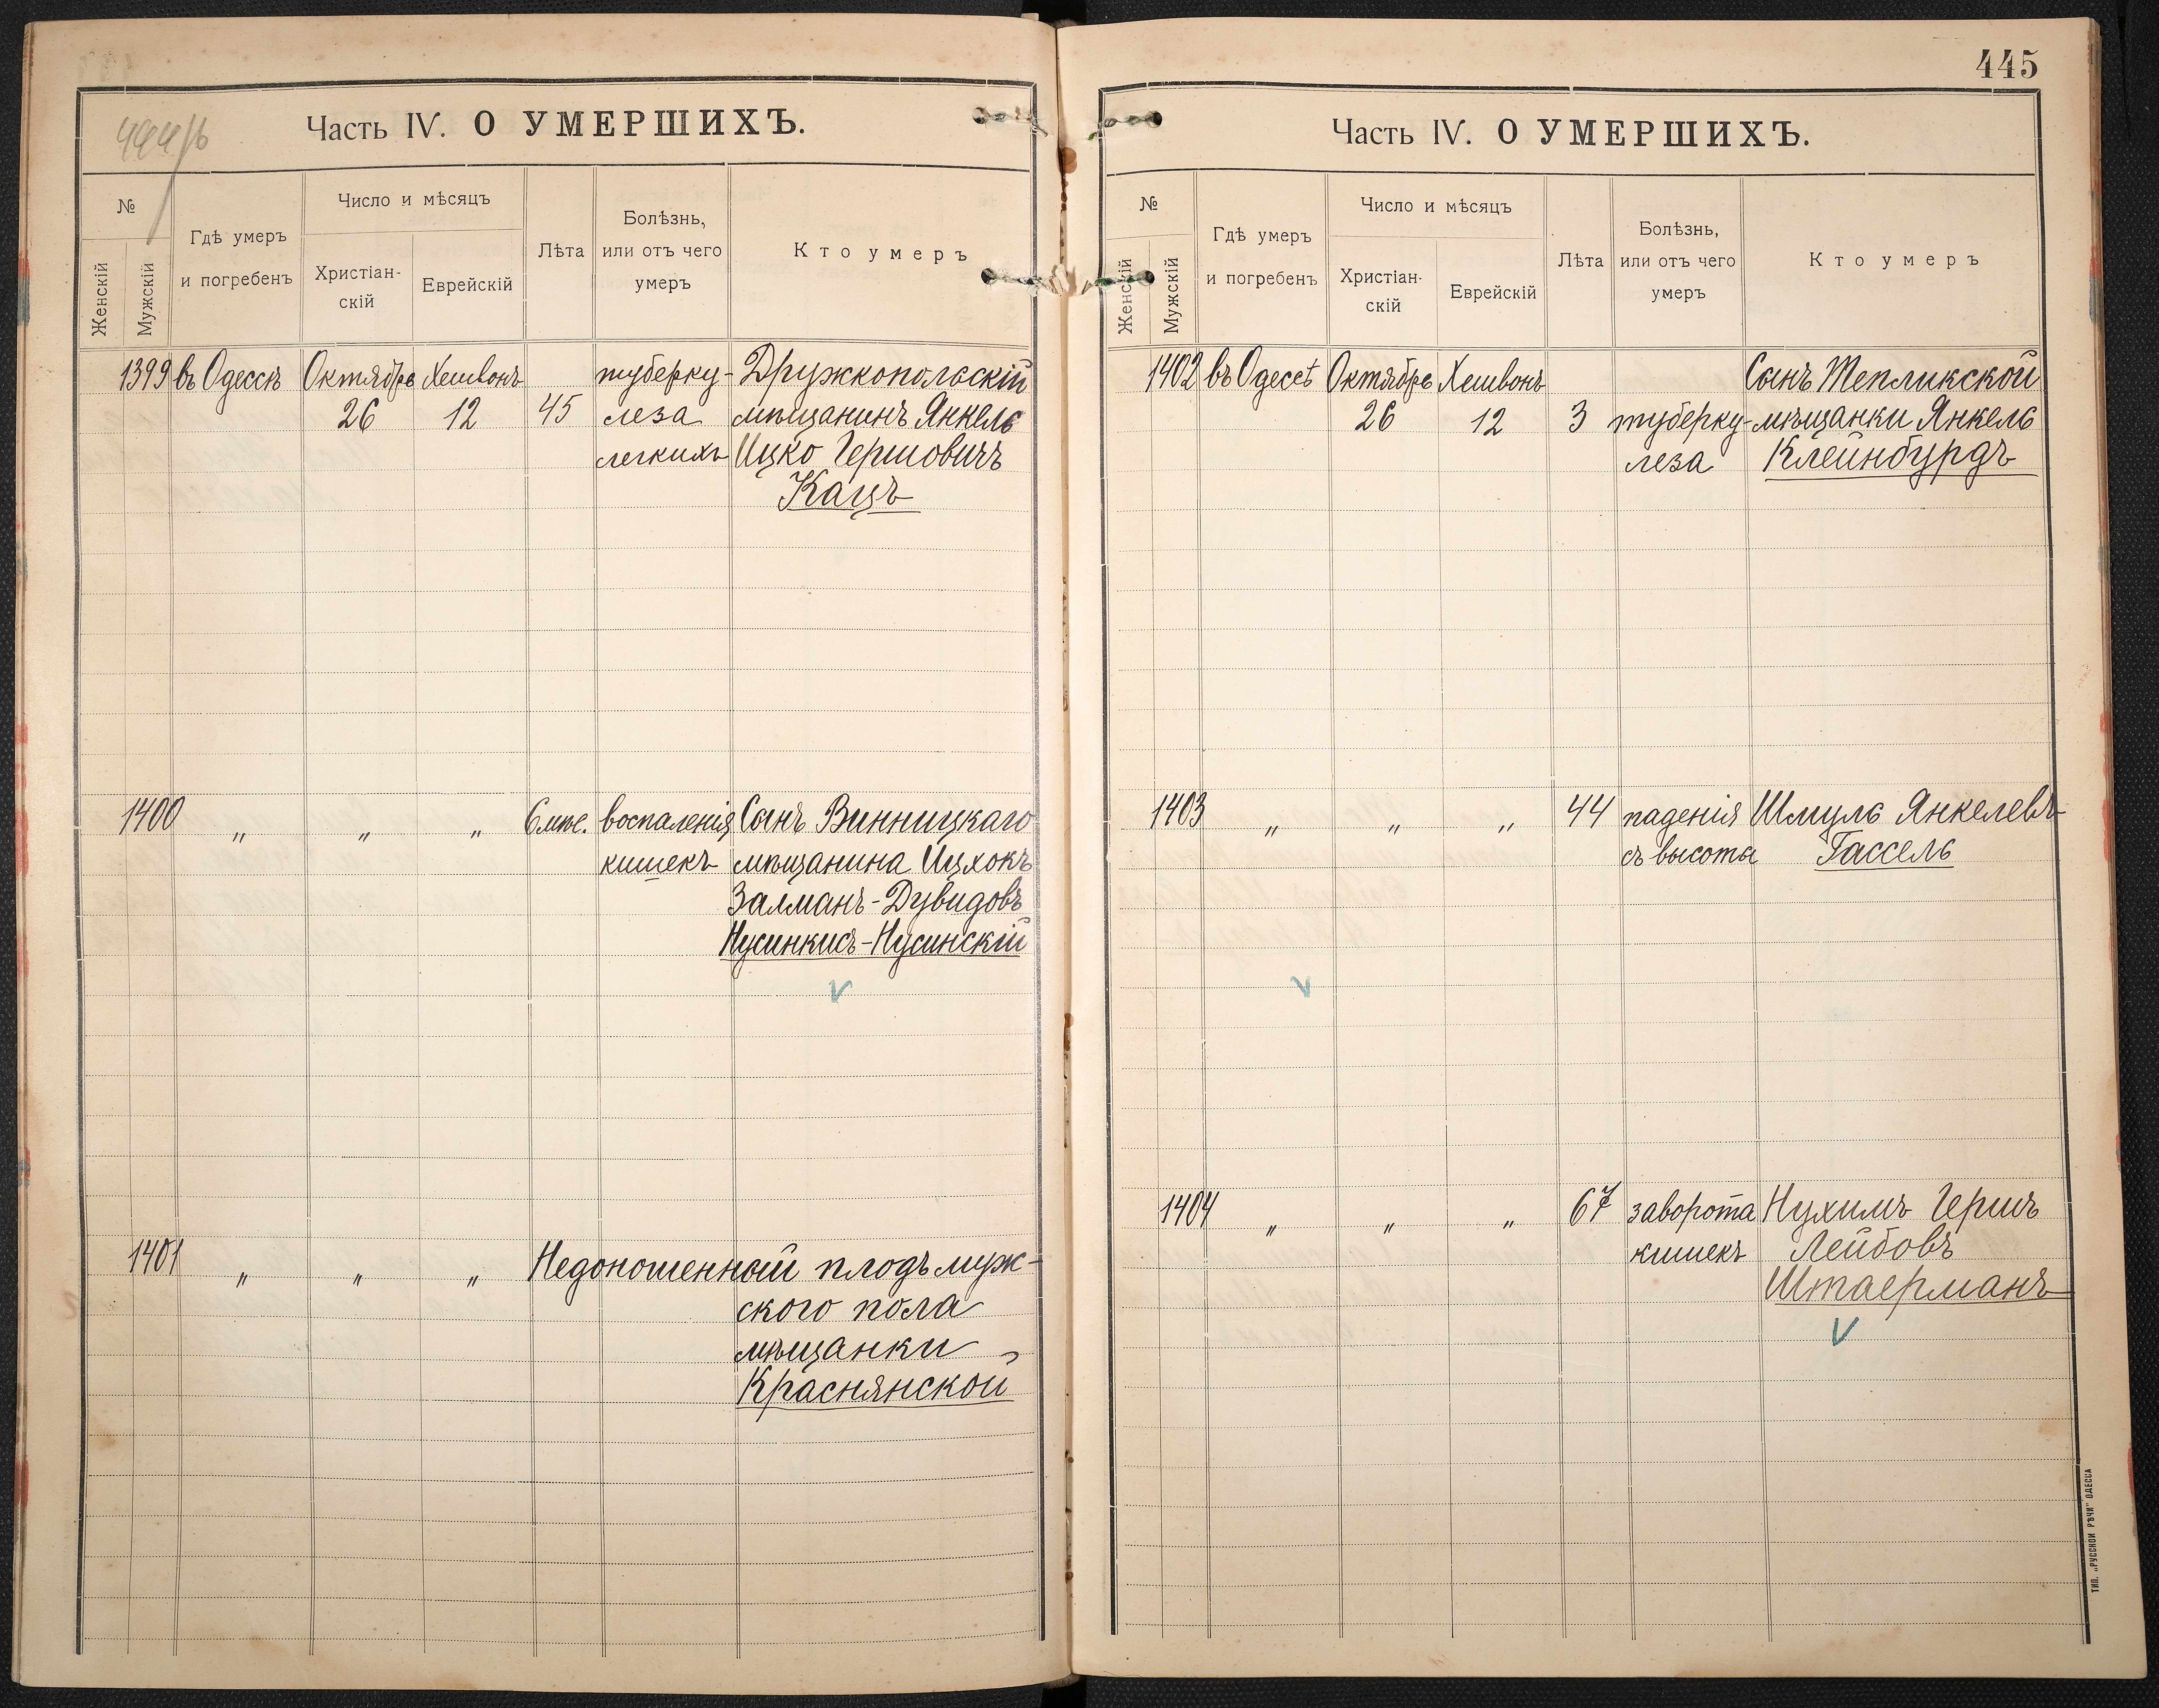 444/б
Часть IV. О УМЕРШИХЪ.
№
Женскій
Мужскій
Гдѣ умеръ
и погребенъ
Число и мѣсяцъ
Христіан-
скій
Еврейскій
Лѣта
Болѣзнь,
или отъ чего
умеръ
Кто умеръ
1399 въ Одессѣ Октябрь Хешвонъ туберку- Дружкопольскій
26 12 45 леза мѣщанинъ Янкель
легкихъ Ицко Гершовичъ
Кацъ
1400 " " " 6 мѣс. воспаленія Сынъ Винницкаго
кишекъ мѣщанина Ицхокъ
Залманъ-Дувидовъ
Нусинкисъ-Нусинскій
1401 " " " Недоношенный плодъ муж-
ского пола
мѣщанки
Краснянской
445
Часть IV. О УМЕРШИХЪ.
№
Женскій
Мужскій
Гдѣ умеръ
и погребенъ
Число и мѣсяцъ
Христіан-
скій
Еврейскій
Лѣта
Болѣзнь,
или отъ чего
умеръ
Кто умеръ
1402 въ Одессѣ Октябрь Хешвонъ Сынъ Тепликской
26 12 3 туберку- мѣщанки Янкель
леза Клейнбурдъ
1403 " " " 44 паденія Шмуль Янкелевъ
съ высоты Гассель
1404 " " " 67 заворота Нухимъ Гершъ
кишекъ Лейбовъ
Штаерманъ
ТИП. „РУССКОЙ РѢЧИ" ОДЕССА